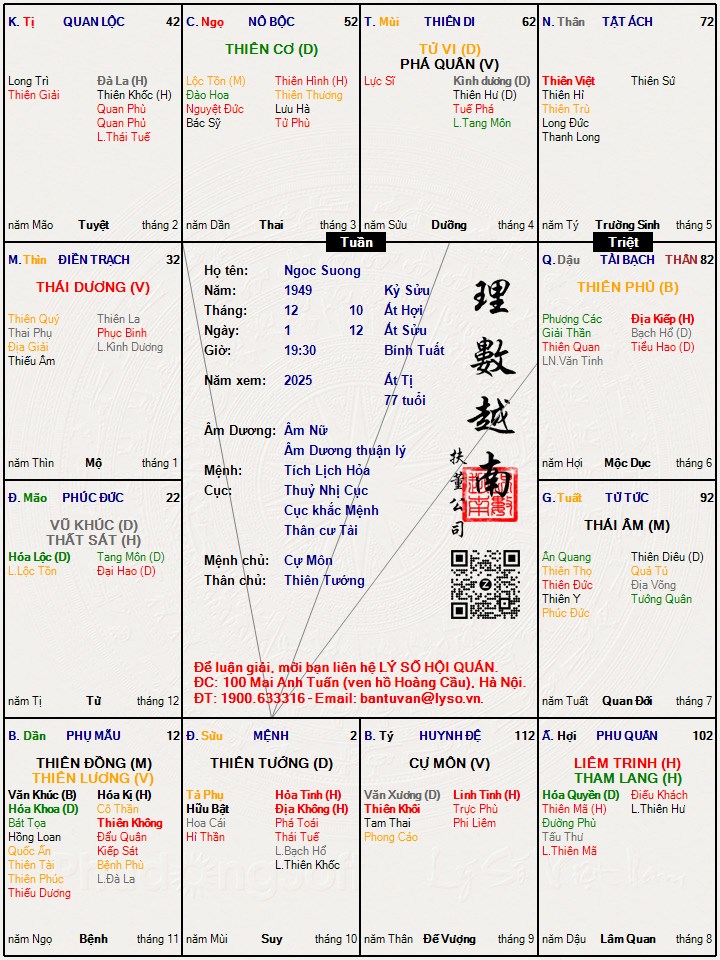 K. Tị QUAN LỘC 42
Long Trì Đà La (H)
Thiên Giải Thiên Khốc (H)
Quan Phù
Quan Phủ
L.Thái Tuế
năm Mão Tuyệt tháng 2
C. Ngọ NÔ BỘC 52
THIÊN CƠ (D)
Lộc Tồn (M) Thiên Hình (H)
Đào Hoa Thiên Thương
Nguyệt Đức Lưu Hà
Bác Sỹ Tử Phù
năm Dần Thai tháng 3
T. Mùi THIÊN DI 62
TỬ VI (D)
PHÁ QUÂN (V)
Lực Sĩ Kình dương (D)
Thiên Hư (D)
Tuế Phá
L.Tang Môn
năm Sửu Dưỡng tháng 4
N. Thân TẬT ÁCH 72
Thiên Việt Thiên Sứ
Thiên Hỉ
Thiên Trù
Long Đức
Thanh Long
năm Tý Trường Sinh tháng 5
Tuần
Triệt
M. Thìn ĐIỀN TRẠCH 32
THÁI DƯƠNG (V)
Thiên Quý Thiên La
Thai Phụ Phục Binh
Địa Giải L.Kình Dương
Thiếu Âm
năm Thìn Mộ tháng 1
Họ tên: Ngoc Suong
Năm: 1949 Kỷ Sửu
Tháng: 12 10 Ất Hợi
Ngày: 1 12 Ất Sửu
Giờ: 19:30 Bính Tuất
Năm xem: 2025 Ất Tị
77 tuổi
Âm Dương: Âm Nữ
Âm Dương thuận lý
Mệnh: Tích Lịch Hỏa
Cục: Thuỷ Nhị Cục
Cục khắc Mệnh
Thân cư Tài
Mệnh chủ: Cự Môn
Thân chủ: Thiên Tướng
理數越南
扶董公司
Để luận giải, mời bạn liên hệ LÝ SỐ HỘI QUÁN.
ĐC: 100 Mai Anh Tuấn (ven hồ Hoàng Cầu), Hà Nội.
ĐT: 1900.633316 - Email: bantuvan@lyso.vn.
Q. Dậu TÀI BẠCH THÂN 82
THIÊN PHỦ (B)
Phượng Các Địa Kiếp (H)
Giải Thần Bạch Hổ (D)
Thiên Quan Tiểu Hao (D)
LN.Văn Tinh
năm Hợi Mộc Dục tháng 6
Đ. Mão PHÚC ĐỨC 22
VŨ KHÚC (D)
THẤT SÁT (H)
Hóa Lộc (D) Tang Môn (D)
L.Lộc Tồn Đại Hao (D)
năm Tị Tử tháng 12
G. Tuất TỬ TỨC 92
THÁI ÂM (M)
Ân Quang Thiên Diêu (D)
Thiên Thọ Quả Tú
Thiên Đức Địa Võng
Thiên Y Tướng Quân
Phúc Đức
năm Tuất Quan Đới tháng 7
B. Dần PHỤ MẪU 12
THIÊN ĐỒNG (M)
THIÊN LƯƠNG (V)
Văn Khúc (B) Hóa Kị (H)
Hóa Khoa (D) Cô Thần
Bát Tọa Thiên Không
Hồng Loan Đẩu Quân
Quốc Ấn Kiếp Sát
Thiên Tài Bệnh Phù
Thiên Phúc L.Đà La
Thiếu Dương
năm Ngọ Bệnh tháng 11
Đ. Sửu MỆNH 2
THIÊN TƯỚNG (D)
Tả Phụ Hỏa Tinh (H)
Hữu Bật Địa Không (H)
Hoa Cái Phá Toái
Hỉ Thần Thái Tuế
L.Bạch Hổ
L.Thiên Khốc
năm Mùi Suy tháng 10
B. Tý HUYNH ĐỆ 112
CỰ MÔN (V)
Văn Xương (D) Linh Tinh (H)
Thiên Khôi Trực Phù
Tam Thai Phi Liêm
Phong Cáo
năm Thân Đế Vượng tháng 9
Ấ. Hợi PHU QUÂN 102
LIÊM TRINH (H)
THAM LANG (H)
Hóa Quyền (D) Điếu Khách
Thiên Mã (H) L.Thiên Hư
Đường Phù
Tấu Thư
L.Thiên Mã
năm Dậu Lâm Quan tháng 8